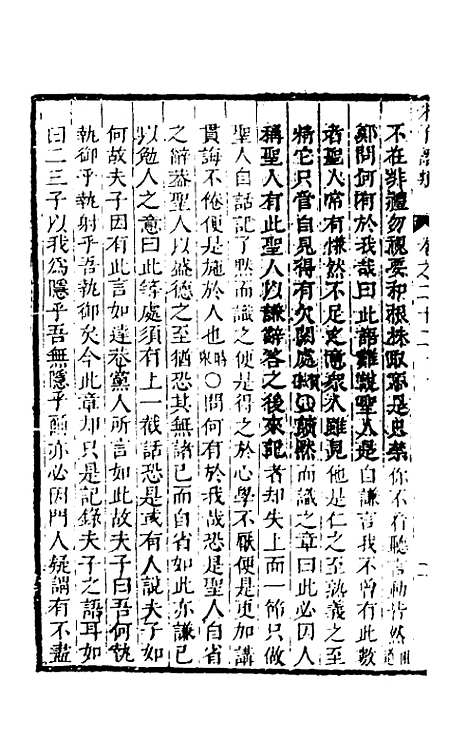 不在非禮勿視要和根株取不是只禁你不看聽言動皆然祖道
鄭問何有於我哉曰此語難說聖人是自謙言我不曾有此數
者聖人常有慊然不足之意眾人雖見他是仁之至熟義之至
精它只管自見得有欠闕處○默然而識之章曰此必因人
稱聖人有此聖人以謙辭答之後來記者却失上面一節只做
聖人自話記了默而識之便是得之於心學不厭便是更加講
貫誨不倦便是施於人也○問何有於我哉恐是聖人自省
之辭蓋聖人以盛德之至猶恐其無諸己而自省如此亦謙己
以勉人之意曰此等處須有上一截話恐是或有人說夫子如
何故夫子因有此言如達巷黨人所言如此故夫子曰吾何執
執御乎執射乎吾執御矣今此章却只是記錄夫子之語耳如
曰二三子以我爲隱乎吾無隱乎爾亦必因門人疑謂有不盡